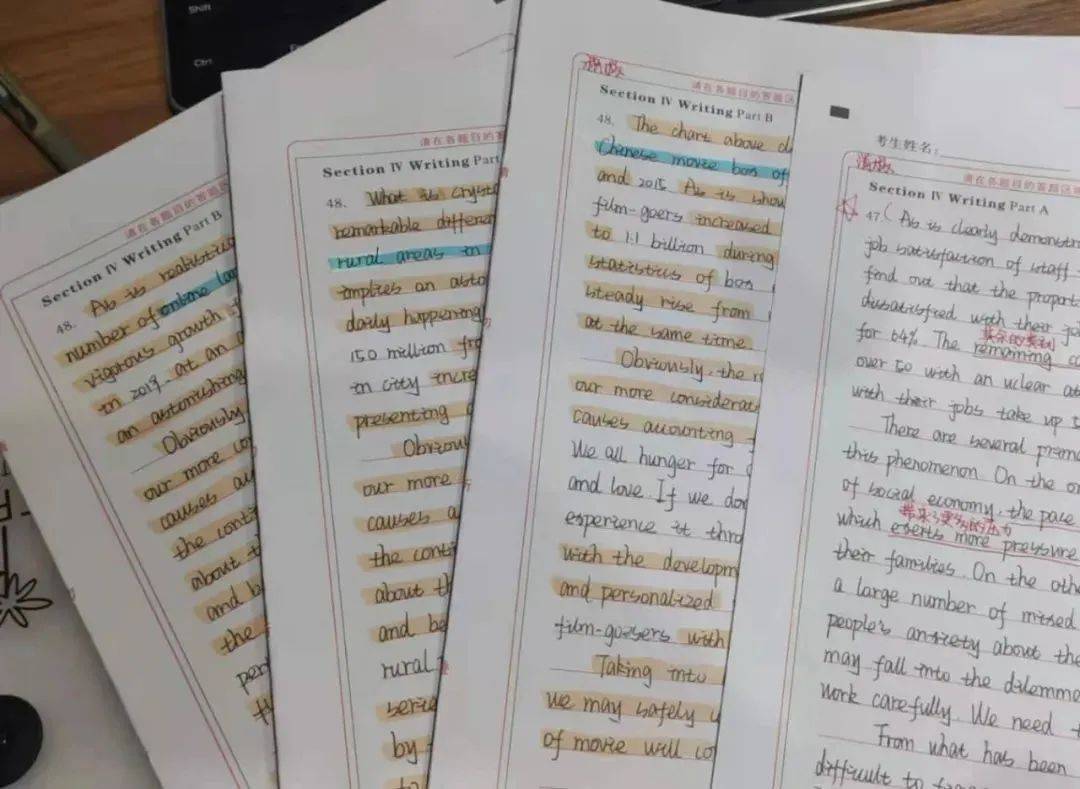 Shift
Ctrl
请在各题目的答题区
Section IV Writing Part B
48. As is realistica
number of online
vigorous growth
in 2019, at an
an astonishing
Obviously
our more co
causes a
the conti
about t
and be
the
per
th
请在各题目的答
Section IV Writing Part
48. What is crysta
remarkable differen
rural areas in
implies an asto
daily happening
150 million fro
in city incre
presenting
Obviou
our more
causes a
the conti
about th
and be
rural
serie
by
to
请在各题目的答题区
Section IV Writing Part B
48. The chart above d
Chinese movie box of
and 2015. As is show
film-goers increased
to 1.1 billion during
statistics of box
steady rise from
at the same time.
Obviously, the r
our more considerat
causes accounting
We all hunger for
and love. If we don
experience it thro
with the developm
and personalized
film-goesers with
Taking into
we may safely
of movie will co
考生姓名:
请在各题目的答题区
Section IV Writing Part A
47. As is clearly demonstr
job satisfaction of staff
find out that the proport
dissatisfied with their jo
其余的类别
for 64%. The remaining c
over 50 with an uclear at
with their jobs take up
There are several prim
this phenomenon. On the o
of social economy, the pace
带来了更多的压力
which exerts more pressure
their families. On the othe
a large number of mixed
people's anxiety about the
may fall into the dilemma
work carefully. We need t
From what has been
difficult to